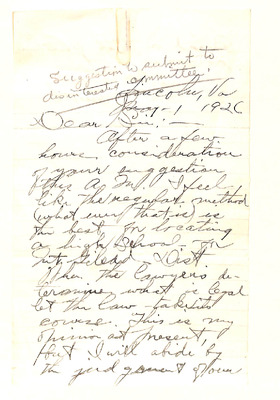 Suggestion to submit to
disinterested committee
Lincoln, Va
1 1926
Dear Sir:—
After a few
hours consideration
of your suggestion
this A.M. I feel
like the regular method
(what ever that is) is
the best, for locating
a high School. for
Dist
When the lawyers de-
termine what is legal
let the law take its
course. This is my
opinion at present,
But I will abide by
the judgement of our